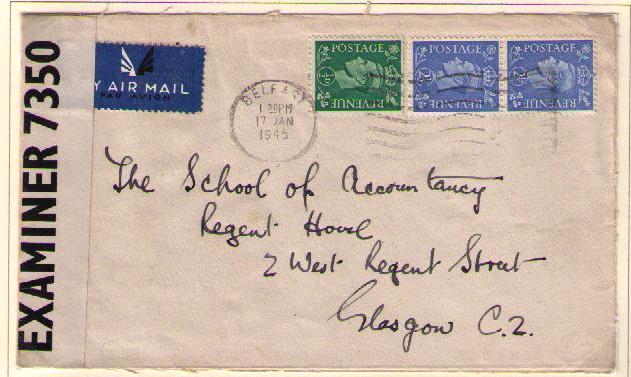 EXAMINER 7350
Y AIR MAIL
PAR AVION
BELFAST
1 30PM
17 JAN
1945
POSTAGE
REVENUE
POSTAGE
2½
REVENUE
POSTAGE
2½
REVENUE
The School of Accountancy
Regent House
2 West Regent Street
Glasgow C.2.